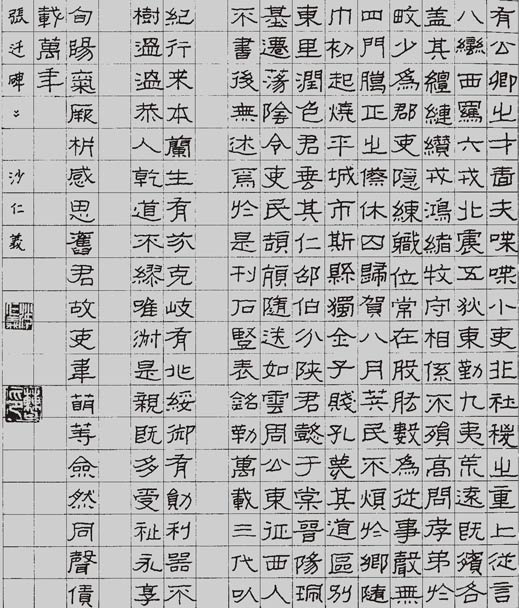 有公卿之才嗇夫喋喋小吏非社稷之重上從言
八蠻西羈六戎北震五狄東勤九夷荒遠既殯各
蓋其纏縺纘戎鴻緒牧守相係不殞高問孝弟於
畋少為郡吏隱練職位常在股肱數為從事聲無
四門騰正之僚休囚歸賀八月筭民不煩於鄉隨
巾初起燒平城市斯縣獨全子賤孔蔑其道區別
東里潤色君垂其仁邵伯分陝君懿于棠晉陽珮
基遷蕩陰令吏民頡頏隨送如雲周公東征西人
不書後無述焉於是刊石豎表銘勒萬載三代以
紀行来本蘭生有芬克岐有兆綏御有勛利器不
樹溫溫恭人乾道不繆唯淑是親既多受祉永享
旬陽氣厥析感思舊君故吏韋萌等僉然同聲賃
載萬年
張遷碑 沙仁義